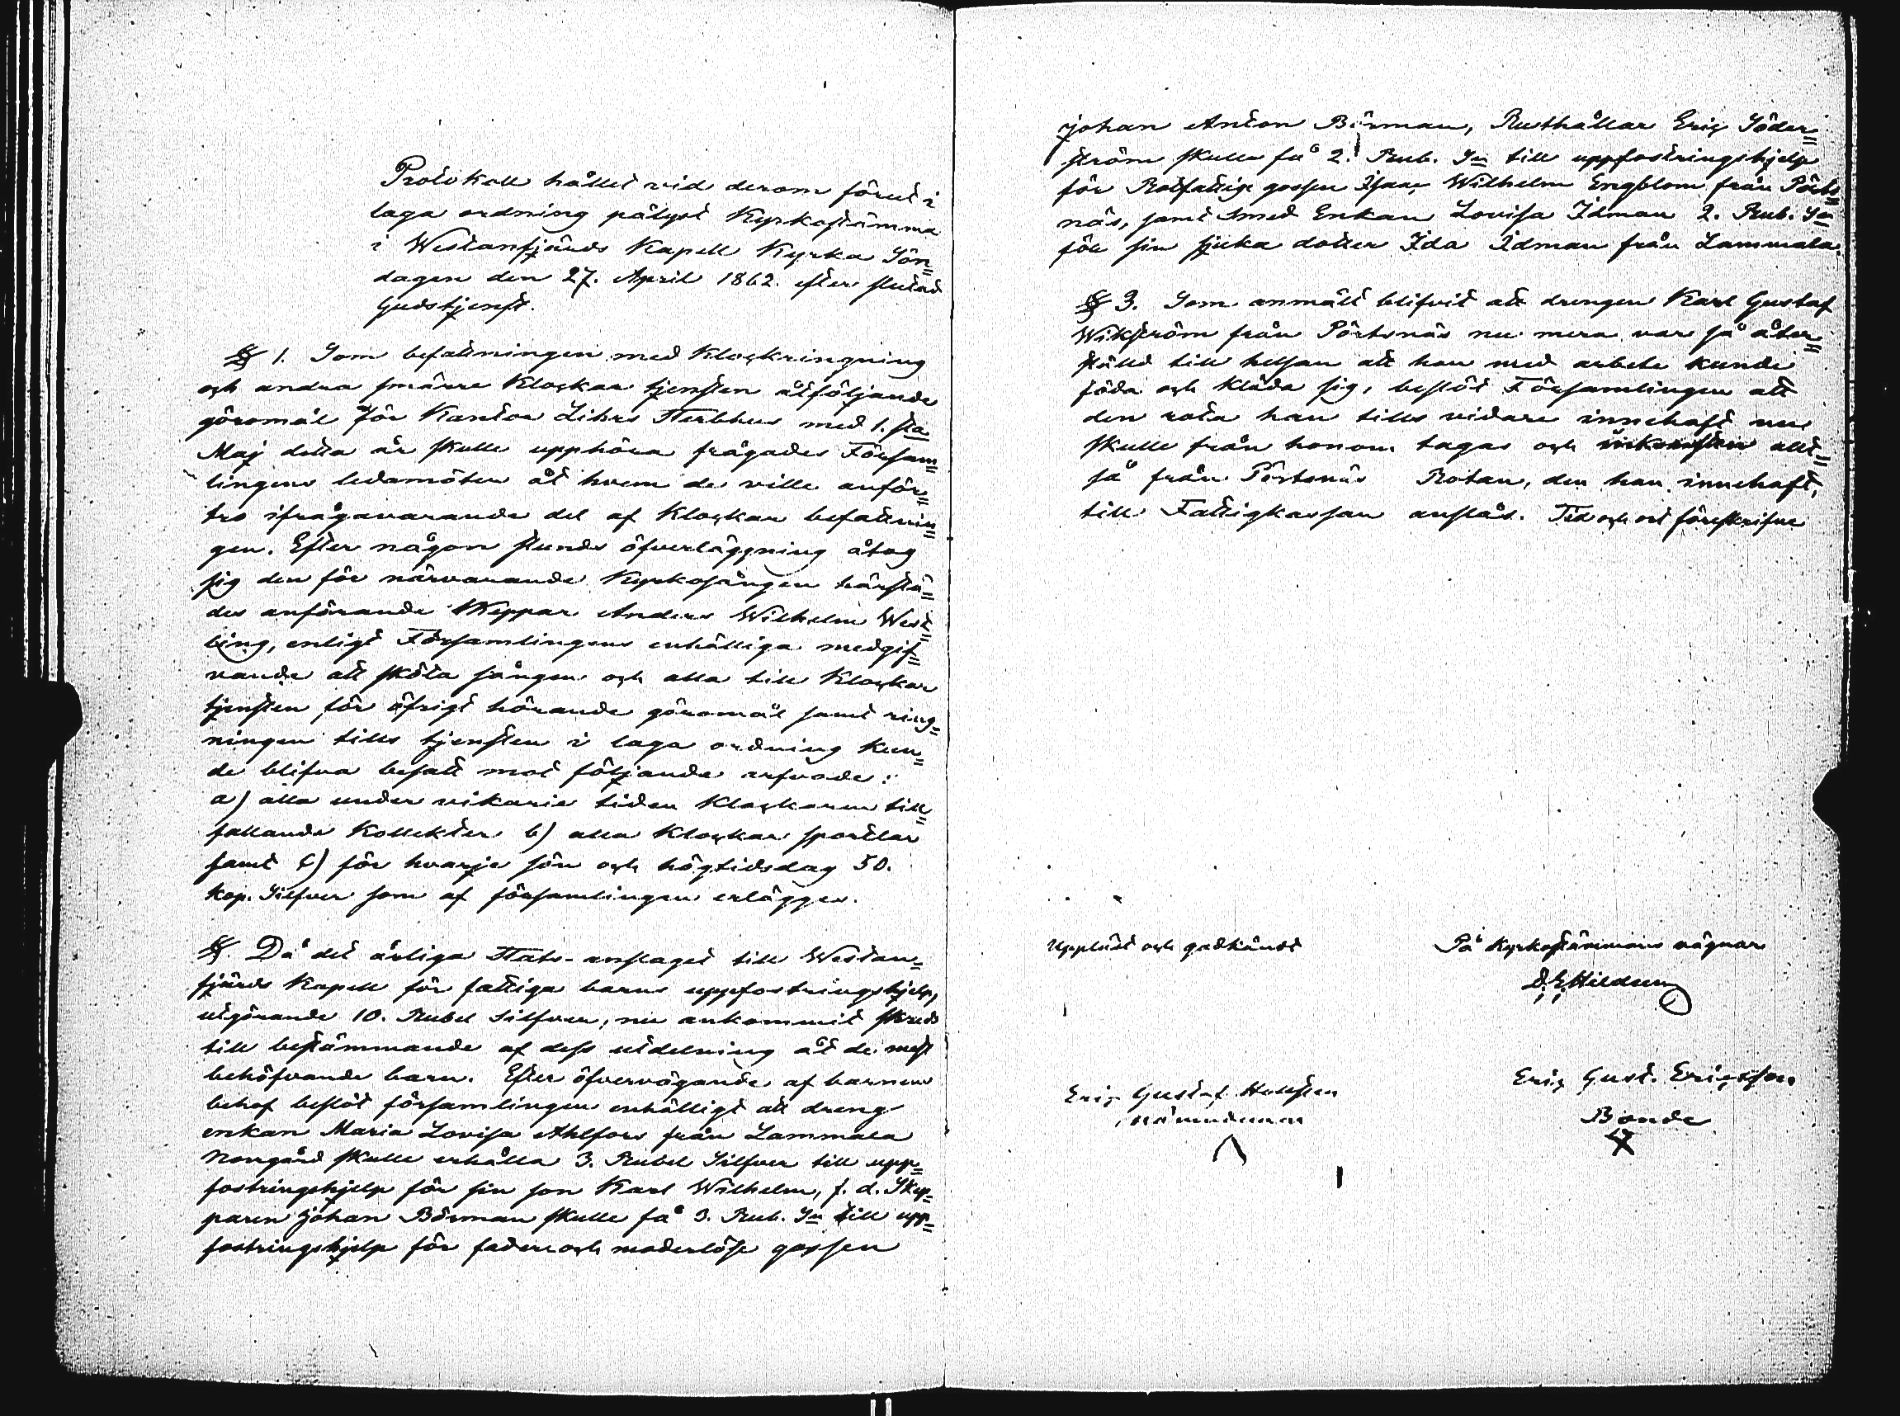 Protokoll hållet vid derom förut i
laga ordning pålyst Kyrkostämma
i Westanfjärds Kapell Kyrka Sön=
dagen den 27. April 1862. efter slutad
Gudstjenst.
§ 1. Som befattningen med Klockringning
och andra smärre Klockar tjensten åtföljande
göromål för Kantor Lihrs Sterbhus med 1.sta
Maj detta år skulle upphöra frågades Försam=
lingens ledamöter åt hvem de ville anför=
tro ifrågavarande del af Klockar befattnin=
gen. Efter någon stunds öfverläggning åtog
sig den för närvarande Kyrkosången härstä=
des anförande Skeppar Anders Wilhelm West=
ling, enligt Församlingens enhälliga medgif=
vande att sköta sången och alla till Klockar
tjensten för öfrigt hörande göromål samt ring=
ningen tills tjensten i laga ordning kun=
de blifva besatt mot följande arfvode:
a) alla under vikarie tiden Klockaren till=
fallande Kollekter b) alla Klockar sportlar
samt c) för hvarje sön och högtidsdag 50.
kop. Silfver som af församlingen erlägges.
§. Då det årliga Stats-anslaget till Westan=
fjärds Kapell för fattiga barns uppfostringshjelp,
utgörande 10. Rubel Silfver, nu ankommit skreds
till bestämmande af dess utdelning åt de mest
behöfvande barn. Efter öfvervägande af barnens
behof beslöt församlingen enhälligt att dreng
enkan Maria Lovisa Ahlfors från Lammala
Norrgård skulle erhålla 3. Rubel Silfver till upp=
fostringshjelp för sin son Karl Wilhelm, f. d. Skep=
paren Johan Börman skulle få 3. Rub. Sr till upp=
fostringshjelp för fader och moderlöse gossen
Johan Anton Börman, Rusthållar Eric Söder=
ström skulle få 2. Rub. Sr till uppfostringshjelp
för Rotfattige gossen Isaac Wilhelm Engblom från Pörts=
näs, samt Smed Enkan Lovisa Idman 2. Rub. Sr
för sin sjuka dotter Ida Idman från Lammala.
§ 3. Som anmält blifvit att drengen Karl Gustaf
Wikström från Pörtsnäs nu mera var så åter=
ställd till helsan att han med arbete kunde
föda och kläda sig, beslöt Församlingen att
den rota han tills vidare innehaft nu
skulle från honom tagas och inkomsten allt=
så från Pörtsnäs Rotan, den han innehaft,
till Fattigkassan anslås. Tid och ort föreskrifne
Uppläst och godkändt
På Kyrkostämmans vägnar
Eric Gustaf
Nämndeman
Eric Gust. Ericsson
Bonde